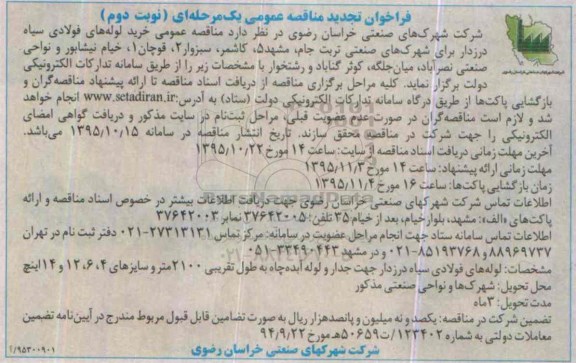 فراخوان تجدید مناقصه عمومی یک‌مرحله‌ای (نوبت دوم)
شرکت شهرک‌های صنعتی خراسان رضوی در نظر دارد مناقصه عمومی خرید لوله‌های فولادی سیاه
درزدار برای شهرک‌های صنعتی تربت جام، مشهد۵، کاشمر، سبزوار۲، قوچان۱، خیام نیشابور و نواحی
صنعتی نصرآباد، میان‌جلگه، کوثر گناباد و رشتخوار با مشخصات زیر را از طریق سامانه تدارکات الکترونیکی
دولت برگزار نماید. کلیه مراحل برگزاری مناقصه از دریافت اسناد مناقصه تا ارائه پیشنهاد مناقصه‌گران و
بازگشایی پاکت‌ها از طریق درگاه سامانه تدارکات الکترونیکی دولت (ستاد) به آدرس: www.setadiran.ir انجام خواهد
شد و لازم است مناقصه‌گران در صورت عدم عضویت قبلی، مراحل ثبت‌نام در سایت مذکور و دریافت گواهی امضای
الکترونیکی را جهت شرکت در مناقصه محقق سازند. تاریخ انتشار مناقصه در سامانه ۱۳۹۵,۱۰,۱۵ می‌باشد.
آخرین مهلت زمانی دریافت اسناد مناقصه از سایت: ساعت ۱۴ مورخ ۱۳۹۵,۱۰,۲۲
مهلت زمانی ارائه پیشنهاد: ساعت ۱۴ مورخ ۱۳۹۵,۱۱,۳
زمان بازگشایی پاکت‌ها: ساعت ۱۶ مورخ ۱۳۹۵,۱۱,۴
اطلاعات تماس شرکت شهرکهای صنعتی خراسان رضوی جهت دریافت اطلاعات بیشتر در خصوص اسناد مناقصه و ارائه
پاکت‌های «الف»: مشهد، بلوار خیام، بعد از خیام ۳۵ تلفن: ۳۷۶۴۲۰۰۵ نمابر ۳۷۶۴۲۰۰۳
اطلاعات تماس سامانه ستاد جهت انجام مراحل عضویت در سامانه: مرکز تماس ۲۷۳۱۳۱۳۱-۰۲۱ دفتر ثبت نام در تهران
۸۸۹۶۹۷۳۷ و ۸۵۱۹۳۷۶۸-۰۲۱ و در مشهد ۳۳۴۹۰۴۴۳-۰۵۱
مشخصات: لوله‌های فولادی سیاه درزدار جهت جدار و لوله آبده چاه به طول تقریبی ۲۱۰۰متر و سایزهای ۴، ۶، ۱۲ و ۱۴ اینچ
محل تحویل: شهرک‌ها و نواحی صنعتی مذکور
مدت تحویل: ۳ماه
تضمین شرکت در مناقصه: یکصد و نه میلیون و پانصدهزار ریال به صورت تضامین قابل قبول مربوط مندرج در آیین‌نامه تضمین
معاملات دولتی به شماره ۱۲۳۴۰۲/ت۵۰۶۵۹هـ مورخ ۹۴,۹,۲۲
شرکت شهرکهای صنعتی خراسان رضوی
۹۵۳۰۰۹۰۱/آ